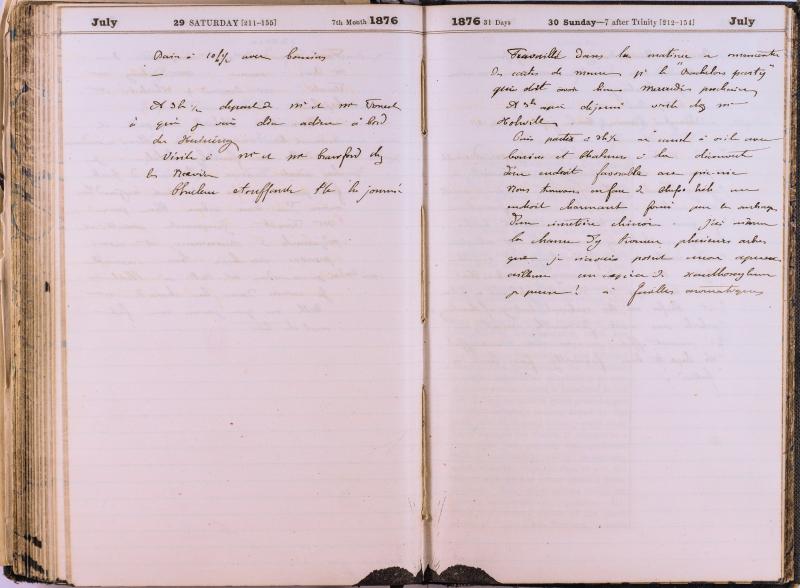 July 29 SATURDAY [211-155] 7th Month 1876
Bain à 10 h ½ avec
—
A 3h ½ départ de Mr et Mme
à qui je vais dire adieu à bord
du
Visite à Mr et Me Crawford chez
les
Chaleur étouffante tte la journée
1876 31 Days 30 Sunday—7 after Trinity [212-154] July
Travaillé dans la matinée a
des cartes de menu pr le "Bachelors party"
qui doit avoir lieu Mercredi prochain
A 3h après déjeuner visite chez Mr
Puis partis à 3h ½ en canot à voile avec
et à la découverte
d'un endroit favorable au pic-nic
Nous trouvons en face de un
endroit charmant formé par les ombrages
d'un cimetière chinois. J'ai même
la chance d'y trouver plusieurs arbres
que je n'avais point encore aperçus
ailleurs une espèce de xanthoxylum
je pense! à feuilles aromatiques